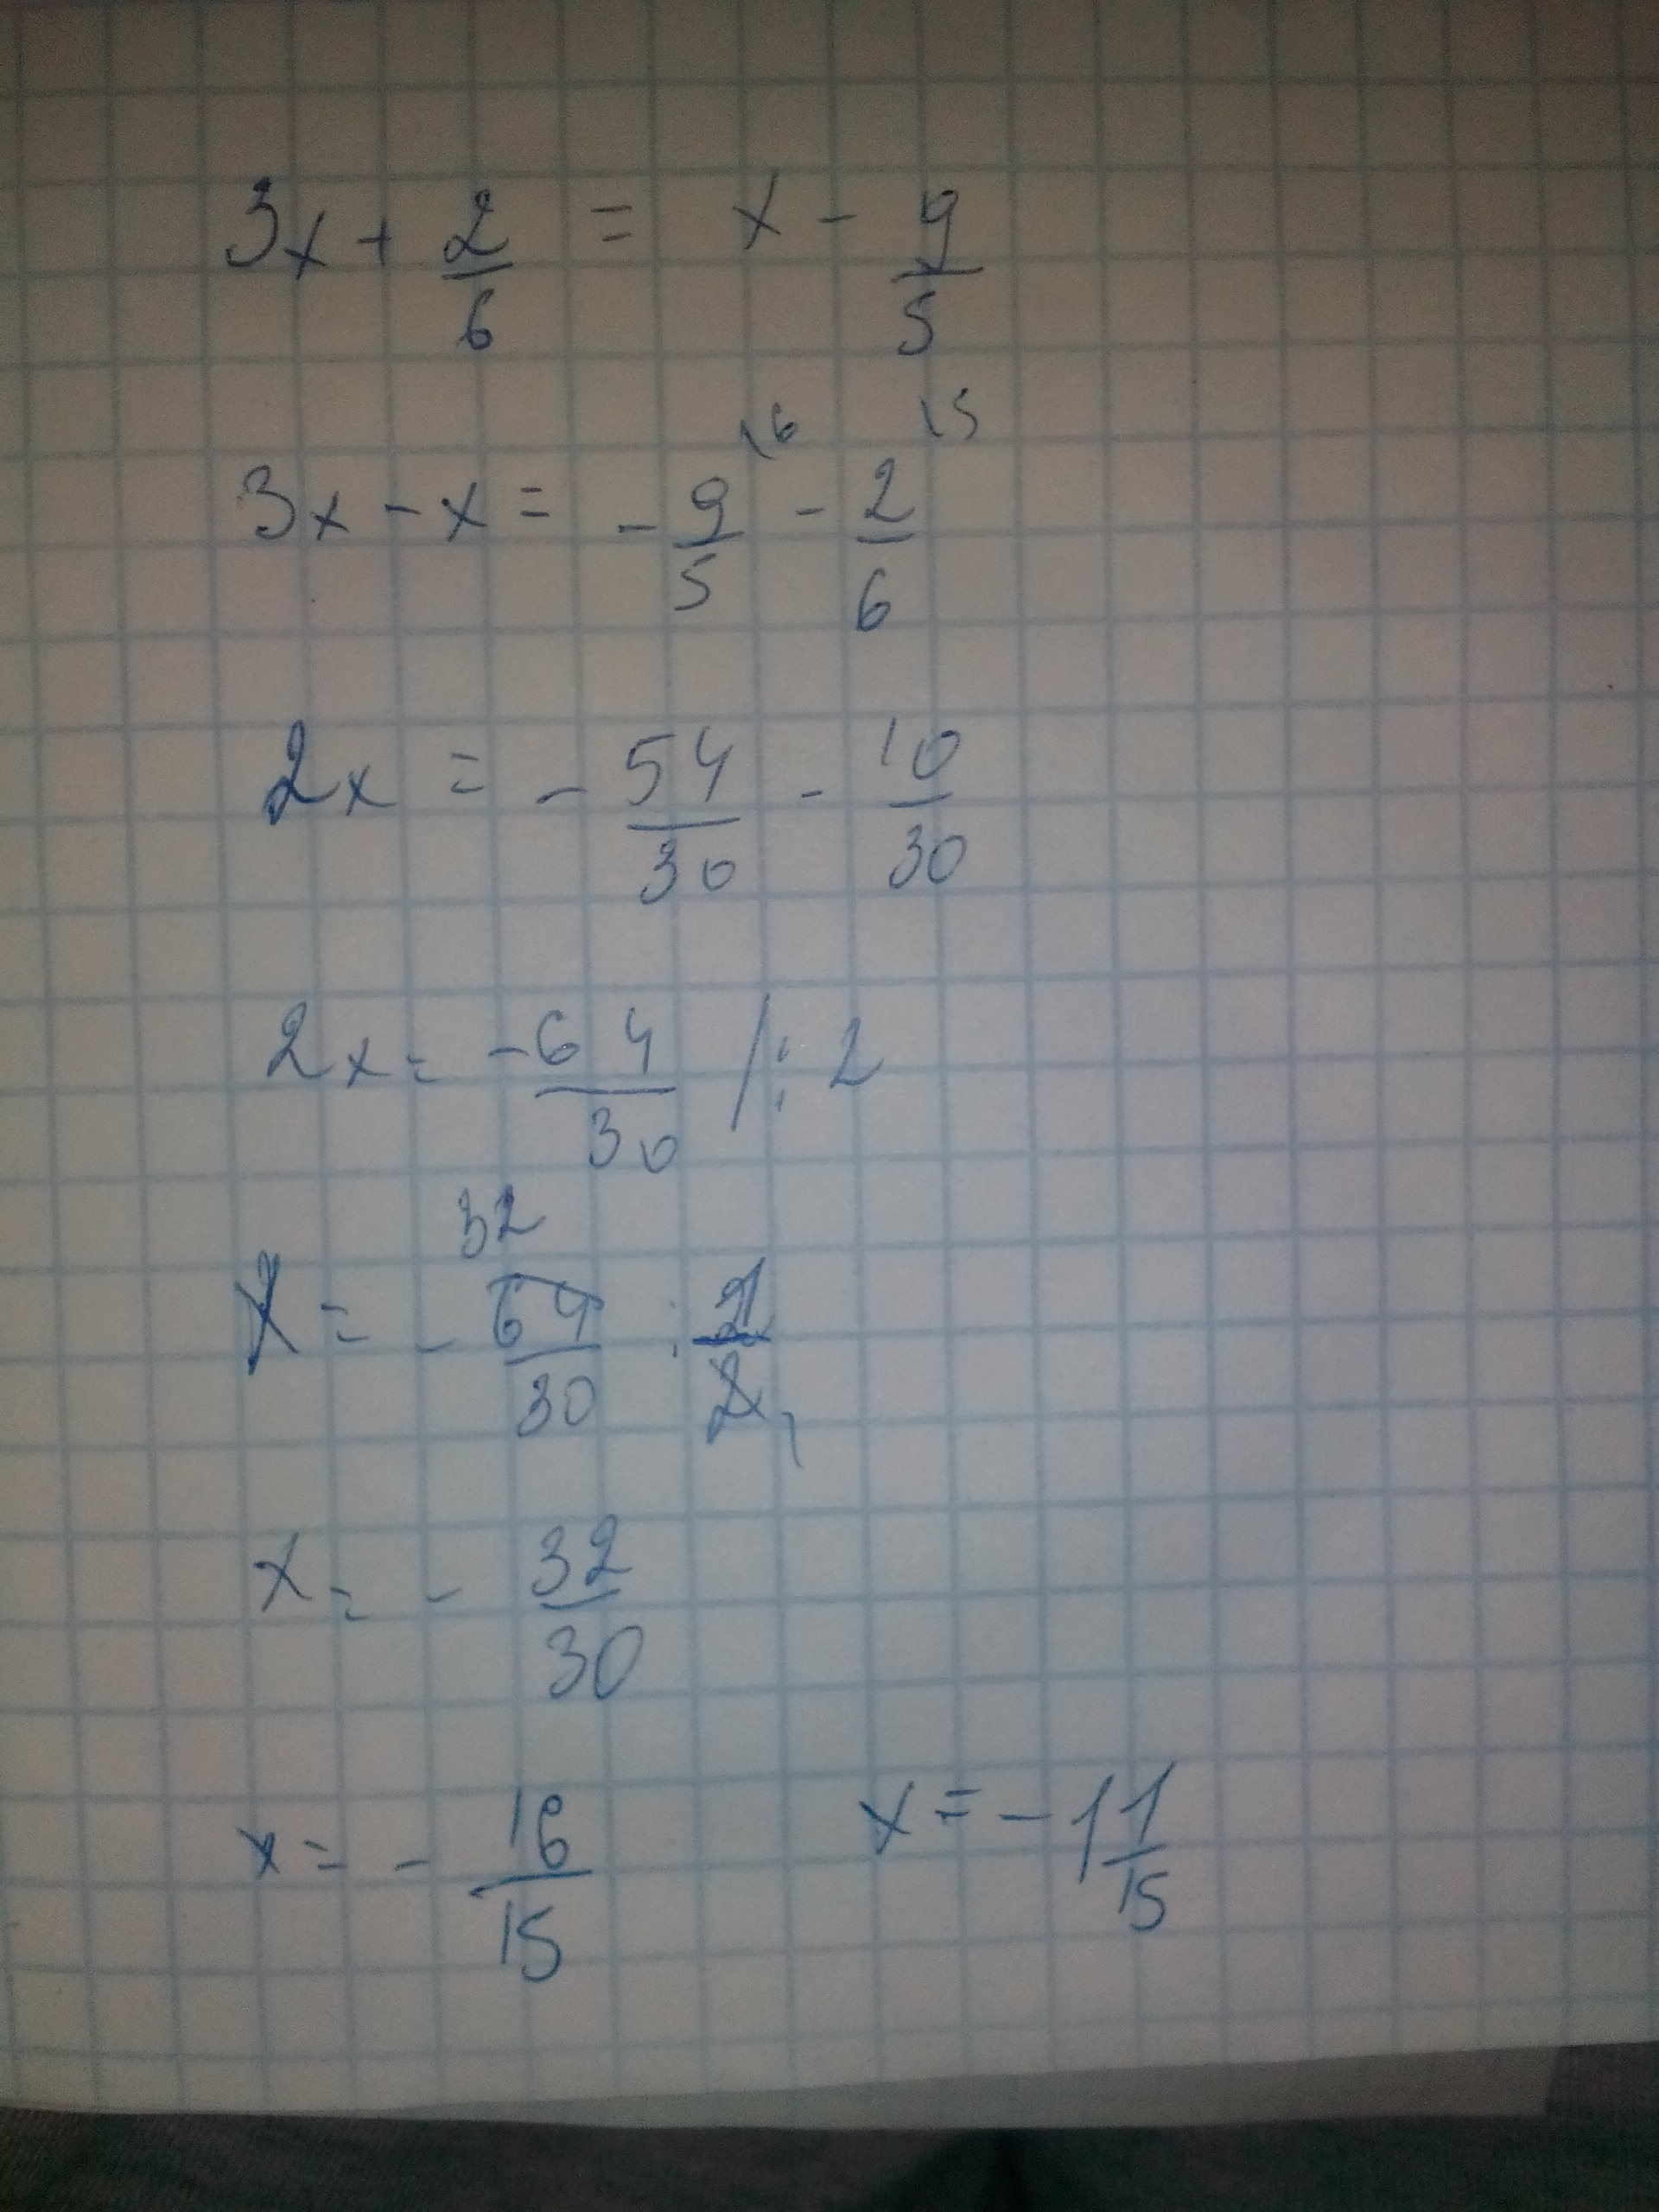 3x + 2/6 = x - 9/5
3x - x = - 9/5 \6 - 2/6 \5
2x = - 54/30 - 10/30
2x = -64/30 /: 2
x = - 64/30 32 : 1/2 1
x = - 32/30
x = - 16/15 x = -1 1/15